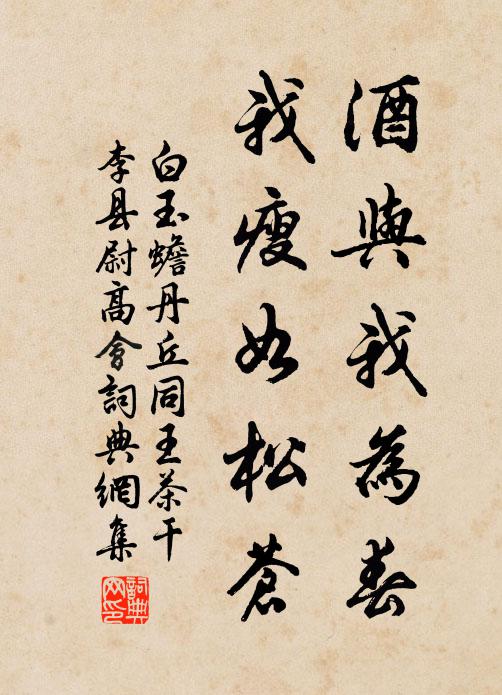 酒與我為春
我瘦如松蒼
白玉蟾丹丘同王茶干
李县尉高會詞典網集
詞典网印